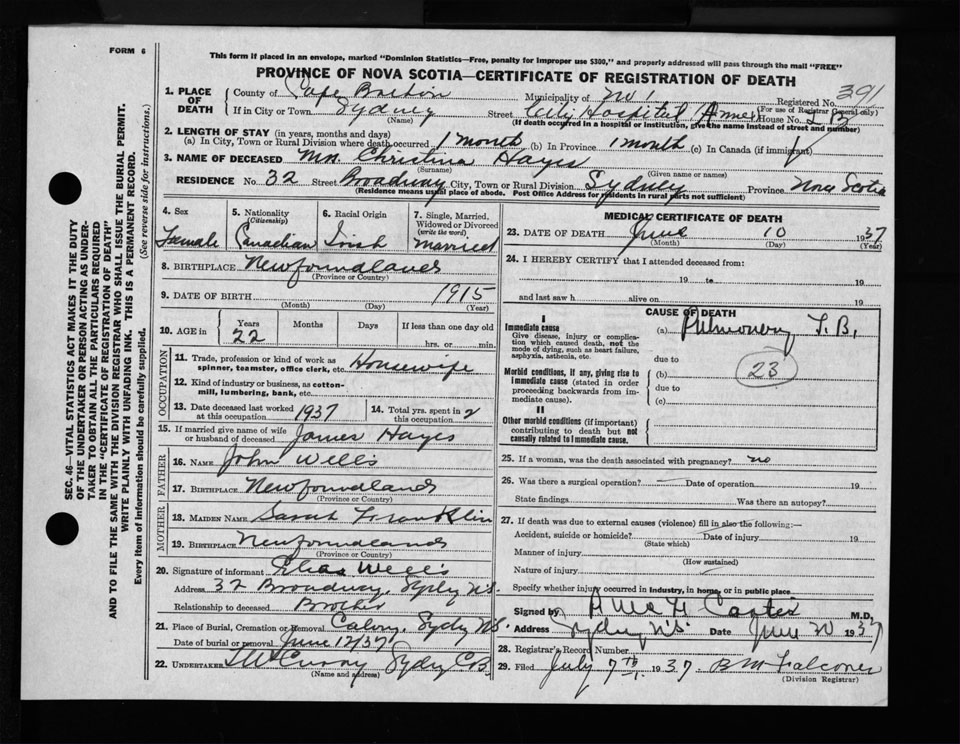 FORM 6
This form if placed in an envelope, marked "Dominion Statistics—Free, penalty for improper use $300," and properly addressed will pass through the mail "FREE"
PROVINCE OF NOVA SCOTIA—CERTIFICATE OF REGISTRATION OF DEATH
1. PLACE OF DEATH
County of Cape Breton Municipality of No 1 Registered No. 391
(For use of Registrar General only)
If in City or Town Sydney Street City Hospital House No.
(Name) (If death occurred in a hospital or institution, give the name instead of street and number)
2. LENGTH OF STAY (in years, months and days)
(a) In City, Town or Rural Division where death occurred 1 month (b) In Province 1 month (c) In Canada (if immigrant)
3. NAME OF DECEASED Mrs. Christina Hayes
(Surname) (Given name or names)
RESIDENCE No. 32 Street Broadway City, Town or Rural Division Sydney Province Nova Scotia
(Residence means usual place of abode. Post Office Address for residents in rural parts not sufficient)
4. Sex Female
5. Nationality (Citizenship) Canadian
6. Racial Origin Irish
7. Single, Married, Widowed or Divorced (write the word) married
8. BIRTHPLACE Newfoundland
(Province or Country)
9. DATE OF BIRTH 1915
(Month) (Day) (Year)
10. AGE in Years 22 Months Days If less than one day old
hrs. or min.
OCCUPATION
11. Trade, profession or kind of work as spinner, teamster, office clerk, etc. Housewife
12. Kind of industry or business, as cotton-mill, lumbering, bank, etc.
13. Date deceased last worked at this occupation 1937
14. Total yrs. spent in 2
15. If married give name of wife or husband of deceased James Hayes
FATHER
16. NAME John Wells
17. BIRTHPLACE Newfoundland
(Province or Country)
MOTHER
18. MAIDEN NAME Sarah Franklin
19. BIRTHPLACE Newfoundland
(Province or Country)
20. Signature of informant Elias Wells
Address 32 Broadway, Sydney N.S.
Relationship to deceased Brother
21. Place of Burial, Cremation or Removal Calvry, Sydney N.S.
Date of burial or removal June 12/37
22. UNDERTAKER Sydney C.B.
(Name and address)
MEDICAL CERTIFICATE OF DEATH
23. DATE OF DEATH June 10 1937
(Month) (Day) (Year)
24. I HEREBY CERTIFY that I attended deceased from:
19 to 19
and last saw h alive on 19
CAUSE OF DEATH
I
Immediate cause
Give disease, injury or complication which caused death, not the mode of dying, such as heart failure, asphyxia, asthenia, etc.
(a) Pulmonary T.B.
due to
Morbid conditions, if any, giving rise to immediate cause (stated in order proceeding backwards from immediate cause).
(b) 23
due to
(c)
II
Other morbid conditions (if important) contributing to death but not causally related to immediate cause.
25. If a woman, was the death associated with pregnancy? no
26. Was there a surgical operation? — Date of operation 19
State findings Was there an autopsy?
27. If death was due to external causes (violence) fill in also the following:—
Accident, suicide or homicide? Date of injury 19
(State which)
Manner of injury
(How sustained)
Nature of injury
Specify whether injury occurred in industry, in home, or in public place
Signed by Carter M.D.
Address Sydney N.S. Date June 20 1937
28. Registrar's Record Number
29. Filed July 7th 1937
(Division Registrar)
SEC. 46—VITAL STATISTICS ACT MAKES IT THE DUTY
OF THE UNDERTAKER OR PERSON ACTING AS UNDER-
TAKER TO OBTAIN ALL THE PARTICULARS REQUIRED
IN THE "CERTIFICATE OF REGISTRATION OF DEATH"
AND TO FILE THE SAME WITH THE DIVISION REGISTRAR WHO SHALL ISSUE THE BURIAL PERMIT.
WRITE PLAINLY WITH UNFADING INK. THIS IS A PERMANENT RECORD.
Every item of information should be carefully supplied. (See reverse side for instructions.)